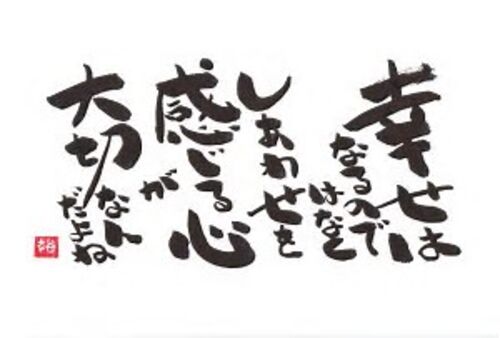 幸せは
なるのでは
はなく
しあわせを
感じる心
が
大切
なん
だよね